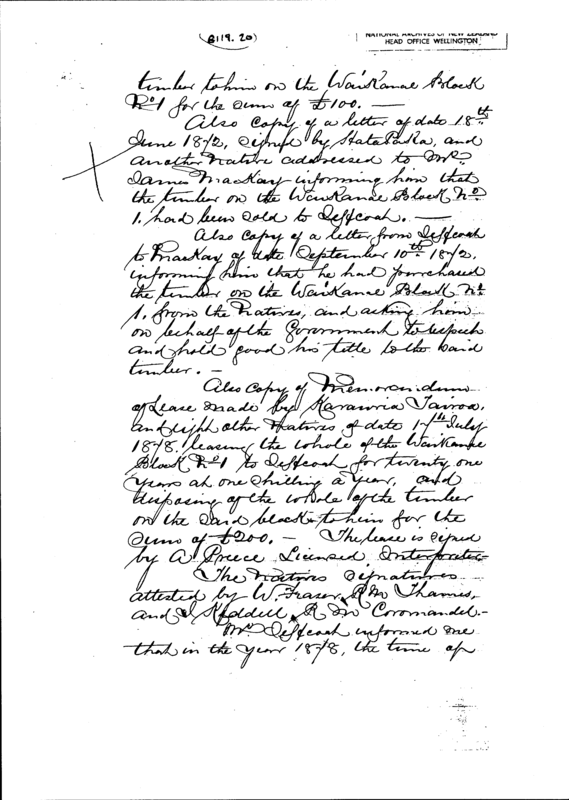 B119. 20)
NATIONAL ARCHIVES OF NEW ZEALAND
HEAD OFFICE WELLINGTON
timber to him on the Waikanae Block
No 1 for the sum of £100. —
Also Copy of a letter of date 18th
June 1872, signed by Hata Paka, and
another Native addressed to Mr
James Mackay informing him that
the timber on the Waikanae Block No
1. had been sold to Jeffcoat. —
Also Copy of a letter from Jeffcoat
to Mackay of date September 10th 1872,
informing him that he had purchased
the timber on the Waikanae Block No
1. from the Natives, and asking him
on behalf of the Government to respect
and hold good his title to the said
timber. —
Also Copy of Memorandum
of Lease made by Karawria
and eight other Natives of date July
1878. leasing the whole of the Waikanae
Block No 1 to Jeffcoat for twenty one
years at one shilling a year, and
disposing of the whole of the timber
on the said block to him for the
sum of £200. — The lease is signed
by A Preece Licensed Interpreter
The Natives signatures
attested by W. Fraser, R M Thames,
and J Keddell, R M Coromandel. —
Mr Jeffcoat informed me
that in the year 1878, the time of